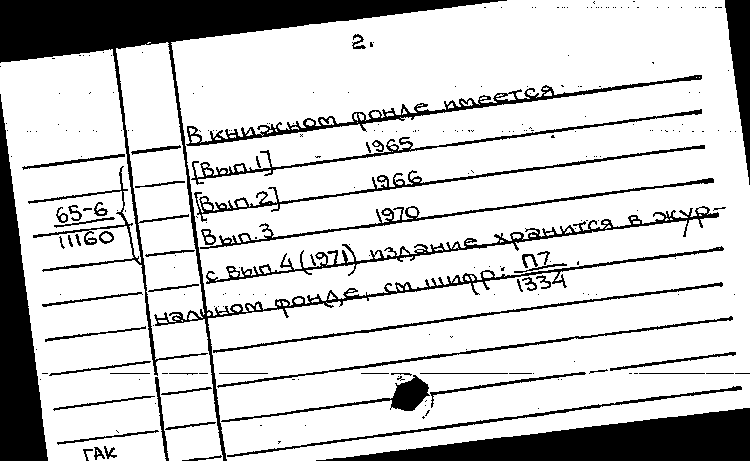 2.
В книжном фонде имеется:
[Вып.1] 1965
[Вып.2] 1966
65-6
11160
Вып.3 1970
с Вып.4 (1971) издание хранится в жур-
нальном фонде, см шифр: П7
1334.
ГАК